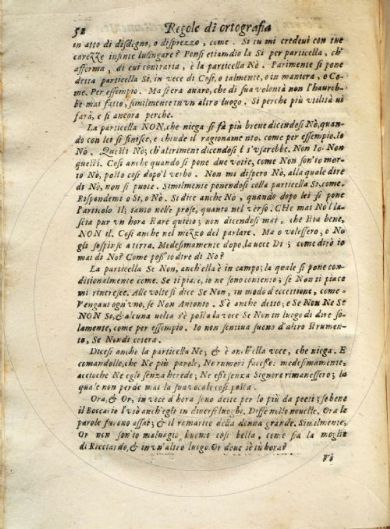 52 Regole di ortografia
in atto di disdegno, o disprezzo, come. Si tu mi credevi con tue
carezze infinte lusingare? Ponsi etiamdio la Sì per particella, ch'
afferma, di cui contraria, è la particella Nò. Parimente si pone
detta particella Sì, in vece di Così, o talmente, o in maniera, o Co-
me. Per essempio. Ma sì era avaro, che di sua volontà non l'haureb-
be mai fatto, similmente in un altro luogo. Sì perche più utilità ui
farà, e sì ancora perche.
La particella NON, che niega si fà più breve dicendosi Nò, quan-
do con lei si finisce, e chiude il ragionamento. come per essempio. Io
Nò. Questi Nò; ch'altrimente dicendosi s'userebbe. Non Io. Non
questi. Così anche quando si pone due volte, come Non son'io mor-
to Nò, posto così dopò'l verbo. Non mi dispero Nò, alla quale dire
di Nò, non si puote. Similmente ponendosi colla particella Si, come.
Rispondemi o Sì, o Nò. Si dice anche Nò, quando dopo lei si pone
l'articolo il; tanto nelle prose, quanto nel verso. CHe mai No'l la-
scia pur un hora Have quieto; non dicendosi mai, che Sta bene,
NON il. Così anche nel mezzo del parlare. Ma o volessero, o No
gli sospirse a terra. Medesimamente dopo la voce Di; come dirò io
mai di No? Come poss'io dire di No?
La particella Se Non, anch'ella è in campo; la quale si pone con-
ditionalmente come. Se ti piace, io ne son contento; se Non ti piace
mi rincresce. Alle volte si dice Se Non, in modo d'eccettione, come
Vengavi ogn'uno, se Non Antonio. S'è anche detto; e Se Non Ne Se
NON Si, & alcuna volta s'è posta la voce Se Non in luogo di dire so-
lamente, come per essempio. Io non sentiva suono d'altro strumen-
to, Se Non di cetera.
Dicesi ancho la particella Ne; & è anch'ella voce, che niega. E
comandolle, che Ne più parole, Ne rumori facesse: medesimamente,
accioche Ne egli senza herede, Ne essi senza Signore rimanessero; la
qual'e non perde mai la sua vocale così posta.
Ora, & Or, in vece d'hora sono dette per lo più da poeti; sebene
il Boccaccio l'usò anch'egli in diversi luoghi. Disse nelle novelle. Ora le
parole furono assai; & il ramarico della donna grande. Similmente,
Or non son'io malvagio huomo così bella, come sia la moglie
di Ricciardo, & in un'altro luogo. Or dove sei tu hora?
Vi